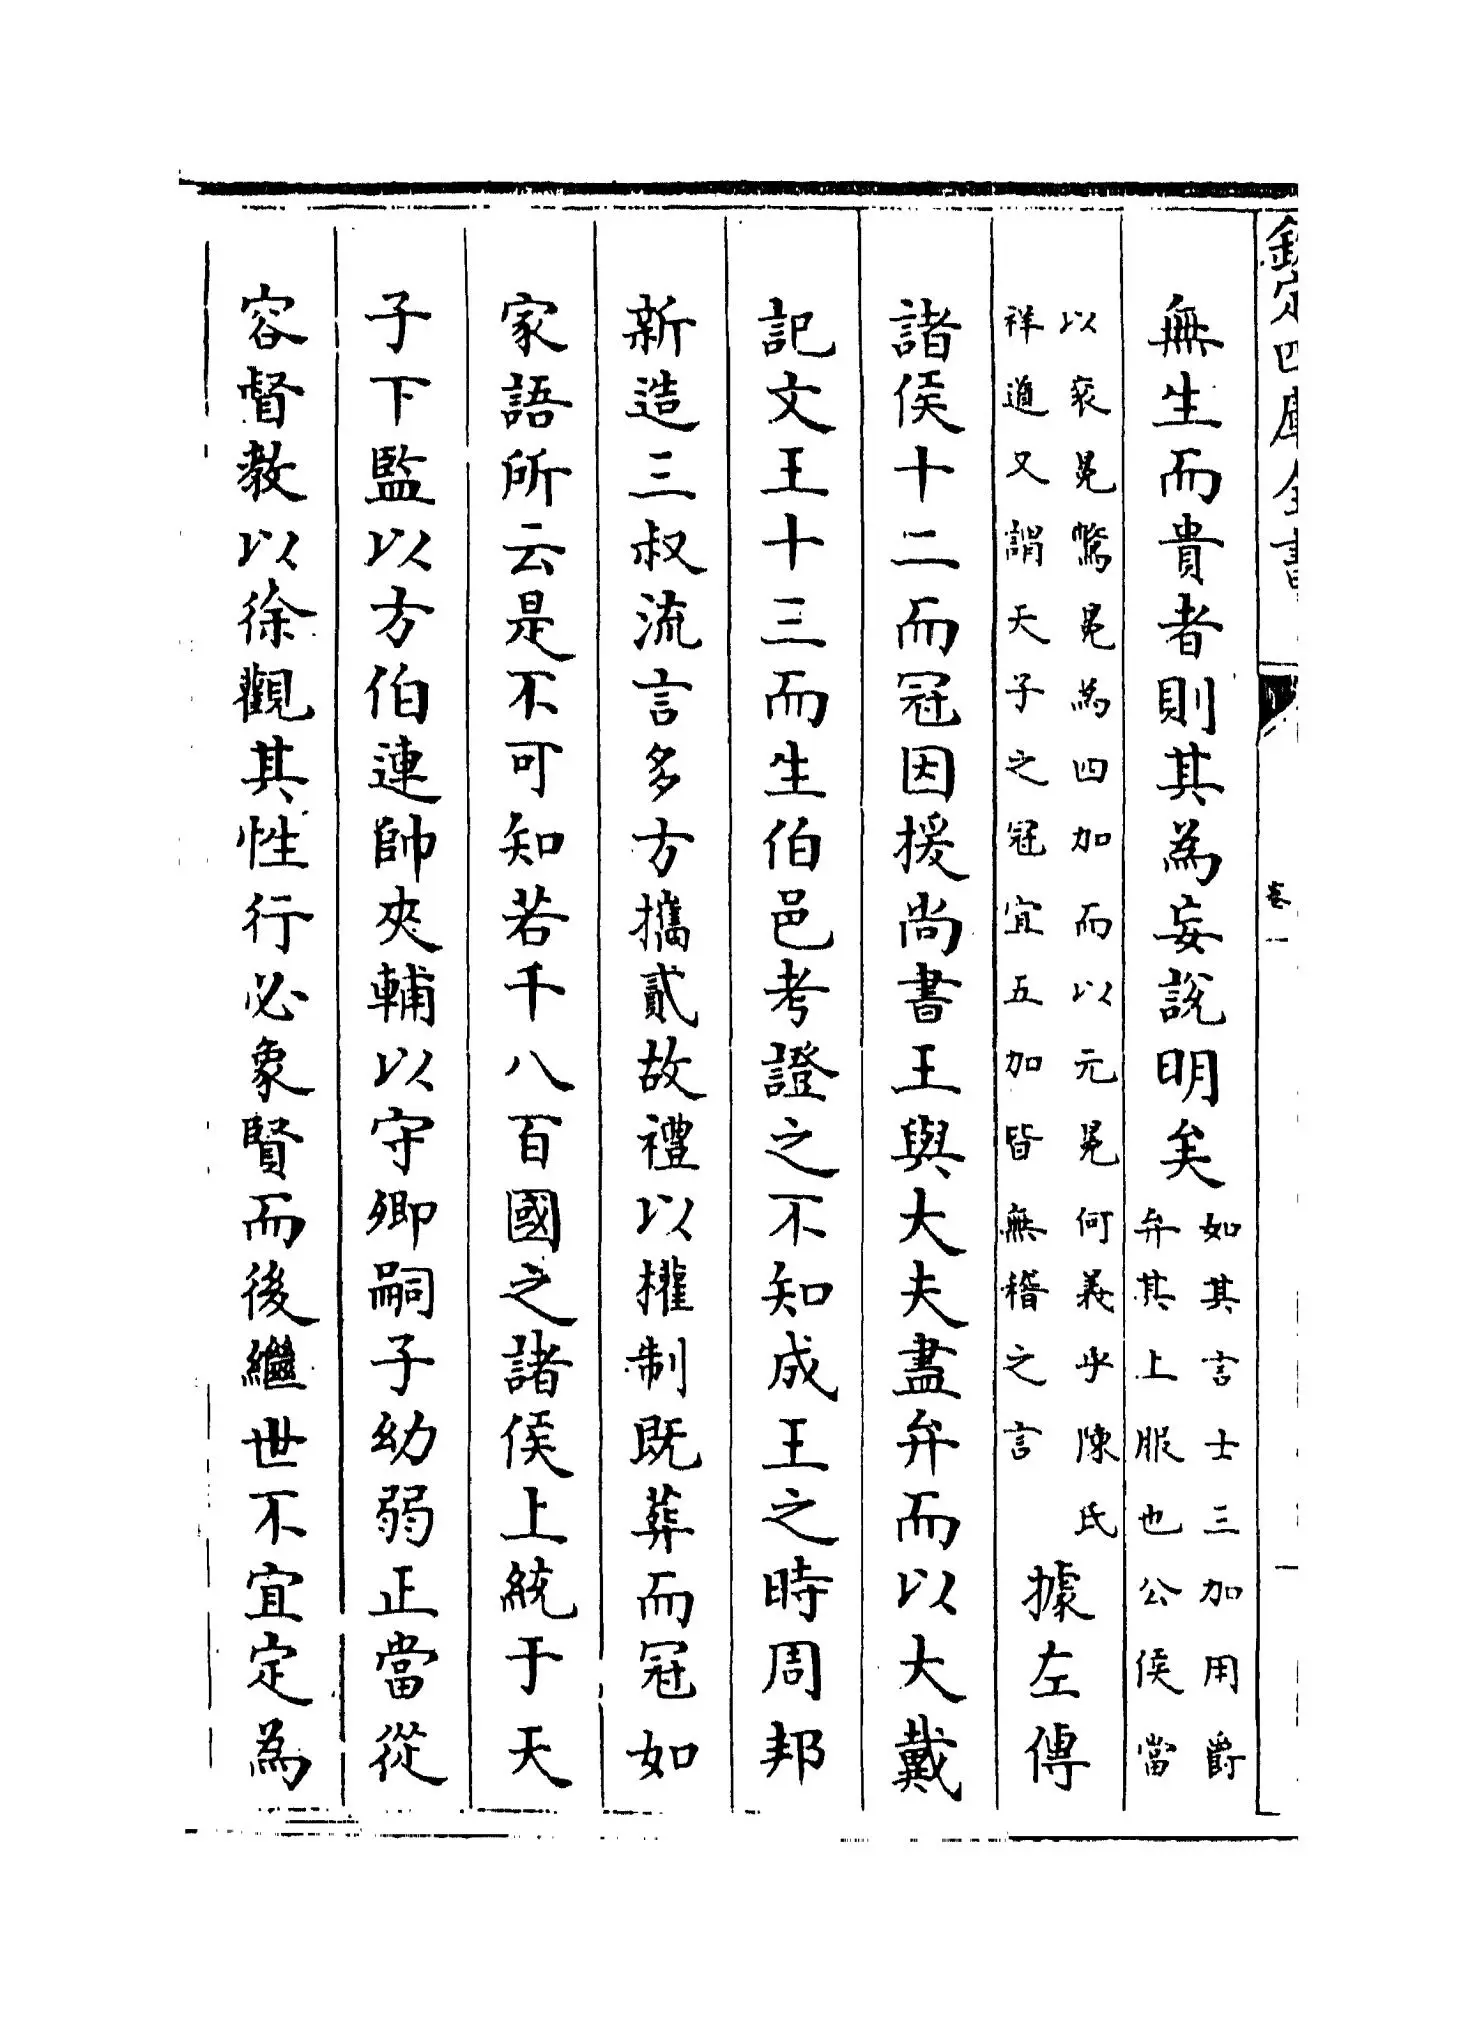 欽定四庫全書
卷一
無生而貴者則其為妄說明矣如其言士三加用爵
弁其上服也公侯當
以衮冕鷩冕為四加而以元冕何義乎陳氏
祥道又謂天子之冠宜五加皆無稽之言據左傳
諸侯十二而冠因援尚書王與大夫盡弁而以大戴
記文王十三而生伯邑考證之不知成王之時周邦
新造三叔流言多方攜貳故禮以權制既葬而冠如
家語所云是不可知若千八百國之諸侯上統于天
子下監以方伯連帥夾輔以守卿嗣子幼弱正當從
容督教以徐觀其性行必象賢而後繼世不宜定為